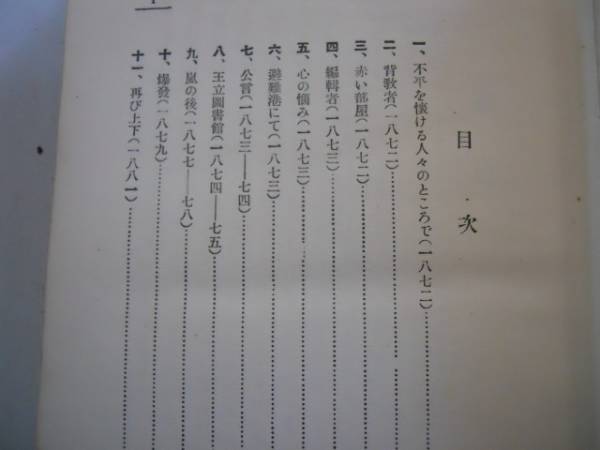 目次
一、不平を懐ける人々のところで(一八七二)
二、背教者(一八七二)
三、赤い部屋(一八七二)
四、編輯者(一八七三)
五、心の悩み(一八七三)
六、避難港にて(一八七三)
七、公言(一八七三——七四)
八、王立圖書館(一八七四——七五)
九、嵐の後(一八七七——七八)
十、爆發(一八七九)
十一、再び上下(一八八一)